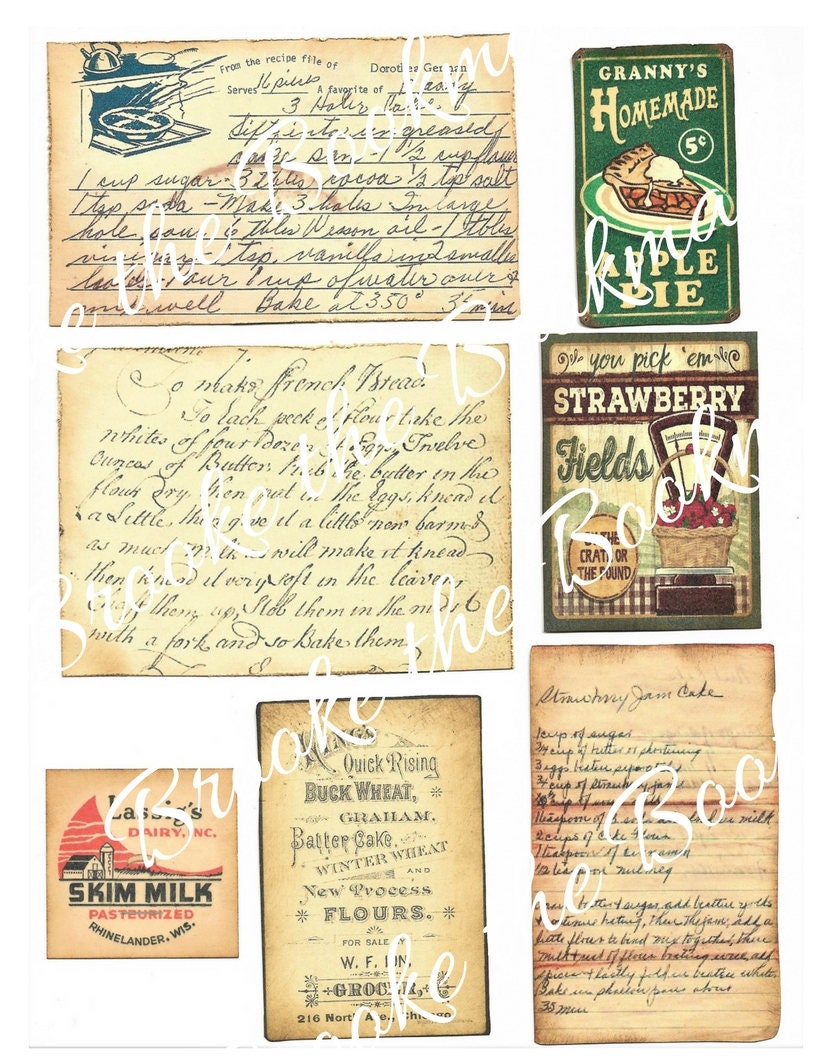 From the recipe file of Dorothea German
Serves 16 pieces A favorite of
3 Holer Cake
Sift into ungreased
cake pan - 1 1/2 cup flour
1 cup sugar - 3 tbles cocoa 1/2 tsp salt
1 tsp soda - Make 3 holes In large
hole pour 6 tbles Wesson oil - 1 tbles
vinegar 1 tsp vanilla in 2 smaller
holes - Pour 1 cup of water over &
mix well Bake at 350° 35 min
GRANNY'S
HOMEMADE
5¢
APPLE
PIE
To make French Bread.
To each peck of flour take the
whites of four dozen of Eggs, Twelve
Ounces of Butter. Rub the butter in the
flour dry, then put in the Eggs, knead it
a Little, then give it a little new barm &
as much milk as will make it knead
then knead it very soft in the leaven,
them up, Stob them in the midst
with a fork and so Bake them.
you pick 'em
STRAWBERRY
Fields
BY THE
CRATE OR
THE POUND
Lassig's
DAIRY, INC.
SKIM MILK
PASTEURIZED
RHINELANDER, WIS.
KING'S
Quick Rising
BUCK WHEAT,
GRAHAM,
Batter Cake,
WINTER WHEAT
AND
New Process
FLOURS.
FOR SALE BY
W. F.
GROCER,
216 North Ave., Chicago
Strawberry Jam Cake
1 cup of sugar
3/4 cup of butter or shortening
3 eggs beaten separately
3/4 cup of strawberry jam
cup of
1 teaspoon of soda milk
2 cups of Cake Flour
1 teaspoon of cinnamon
1/2 teaspoon nutmeg
Cream butter & sugar, add beaten yolks
continue beating, Then the jam, add a
little flour to bind mix together, then
milk & rest of flour beating well, add
spices & lastly fold in beaten whites
Bake in shallow pans about
35 min
Brooke the Bookmaker